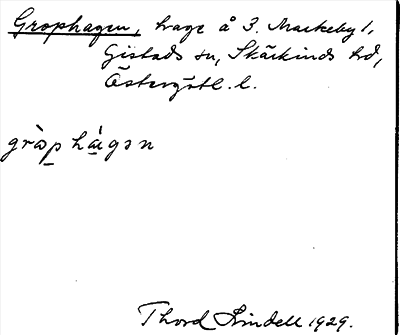 Grophagen, hage å 3. Markeby 1,
Gistads sn, Skärkinds hd,
Östergötl. l.
gròp hà̱gən
Thord Lindell 1929.